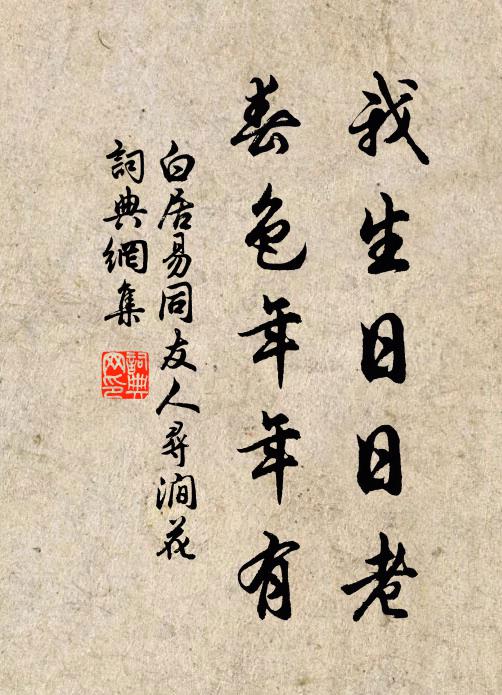 我生日日老
春色年年有
白居易同友人尋澗花
詞典網集
詞典網印